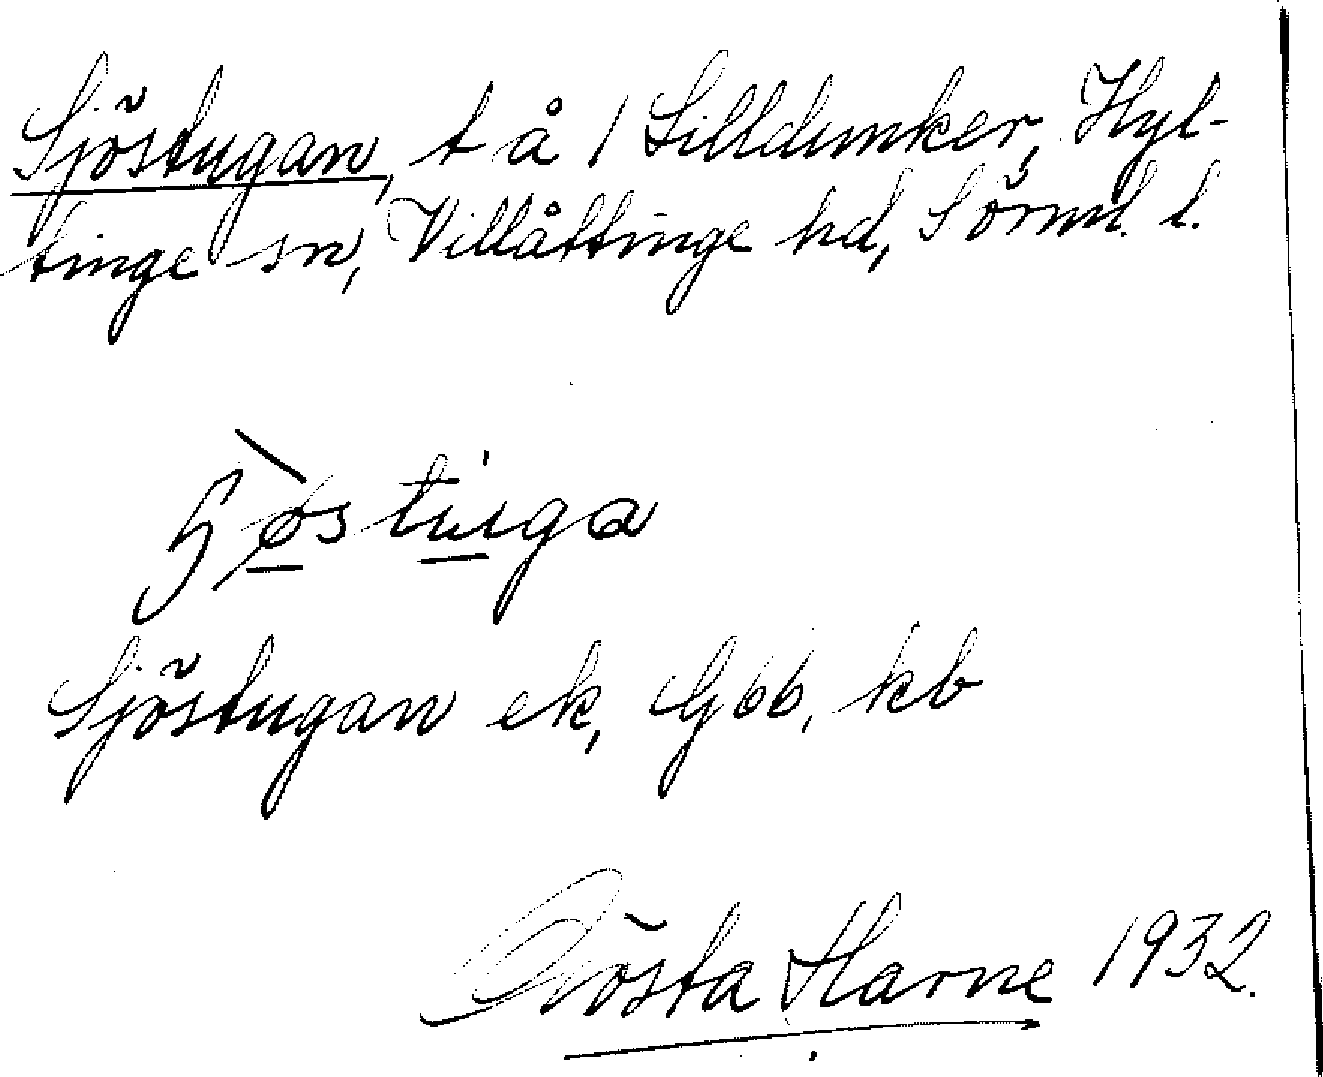 Sjöstugan, t å 1 Lilldunker, Hyl-
tinge sn, Villåttinge hd, Sörml. l.
Sjöstugan ek, G66, kb
Gösta Harne 1932.